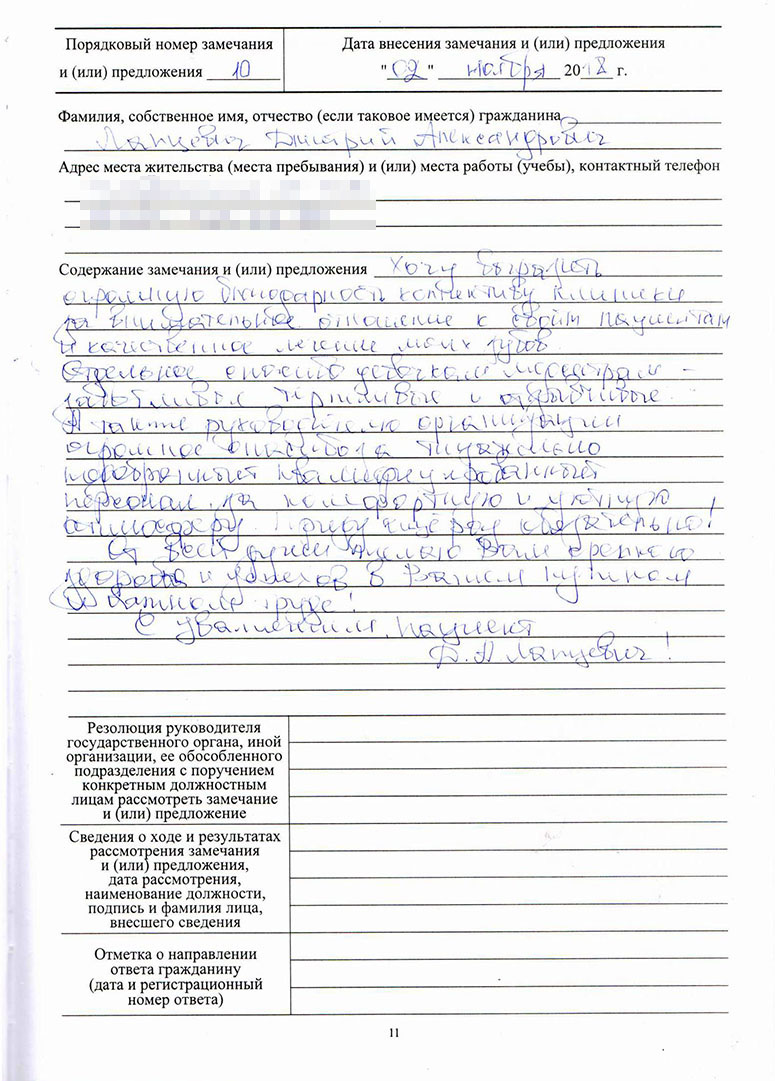 Порядковый номер замечания
и (или) предложения 10
Дата внесения замечания и (или) предложения
"02" ноября 2018 г.
Фамилия, собственное имя, отчество (если таковое имеется) гражданина
Лапцевич Дмитрий Александрович
Адрес места жительства (места пребывания) и (или) места работы (учебы), контактный телефон
Содержание замечания и (или) предложения Хочу выразить
огромную благодарность коллективу клиники
за внимательное отношение к своим пациентам
и качественное лечение моих зубов.
Отдельное спасибо девочкам медсёстрам –
заботливые терпеливые и
А также руководителю организации
огромное спасибо за
подобранный квалифицированный
персонал, за комфортную и уютную
атмосферу. Приду ещё раз обязательно!
От всей души желаю Вам крепкого
здоровья и успехов в Вашем нужном
и важном труде!
С уважением, пациент
Д.А Лапцевич!
Резолюция руководителя
государственного органа, иной
организации, ее обособленного
подразделения с поручением
конкретным должностным
лицам рассмотреть замечание
и (или) предложение
Сведения о ходе и результатах
рассмотрения замечания
и (или) предложения,
дата рассмотрения,
наименование должности,
подпись и фамилия лица,
внесшего сведения
Отметка о направлении
ответа гражданину
(дата и регистрационный
номер ответа)
11